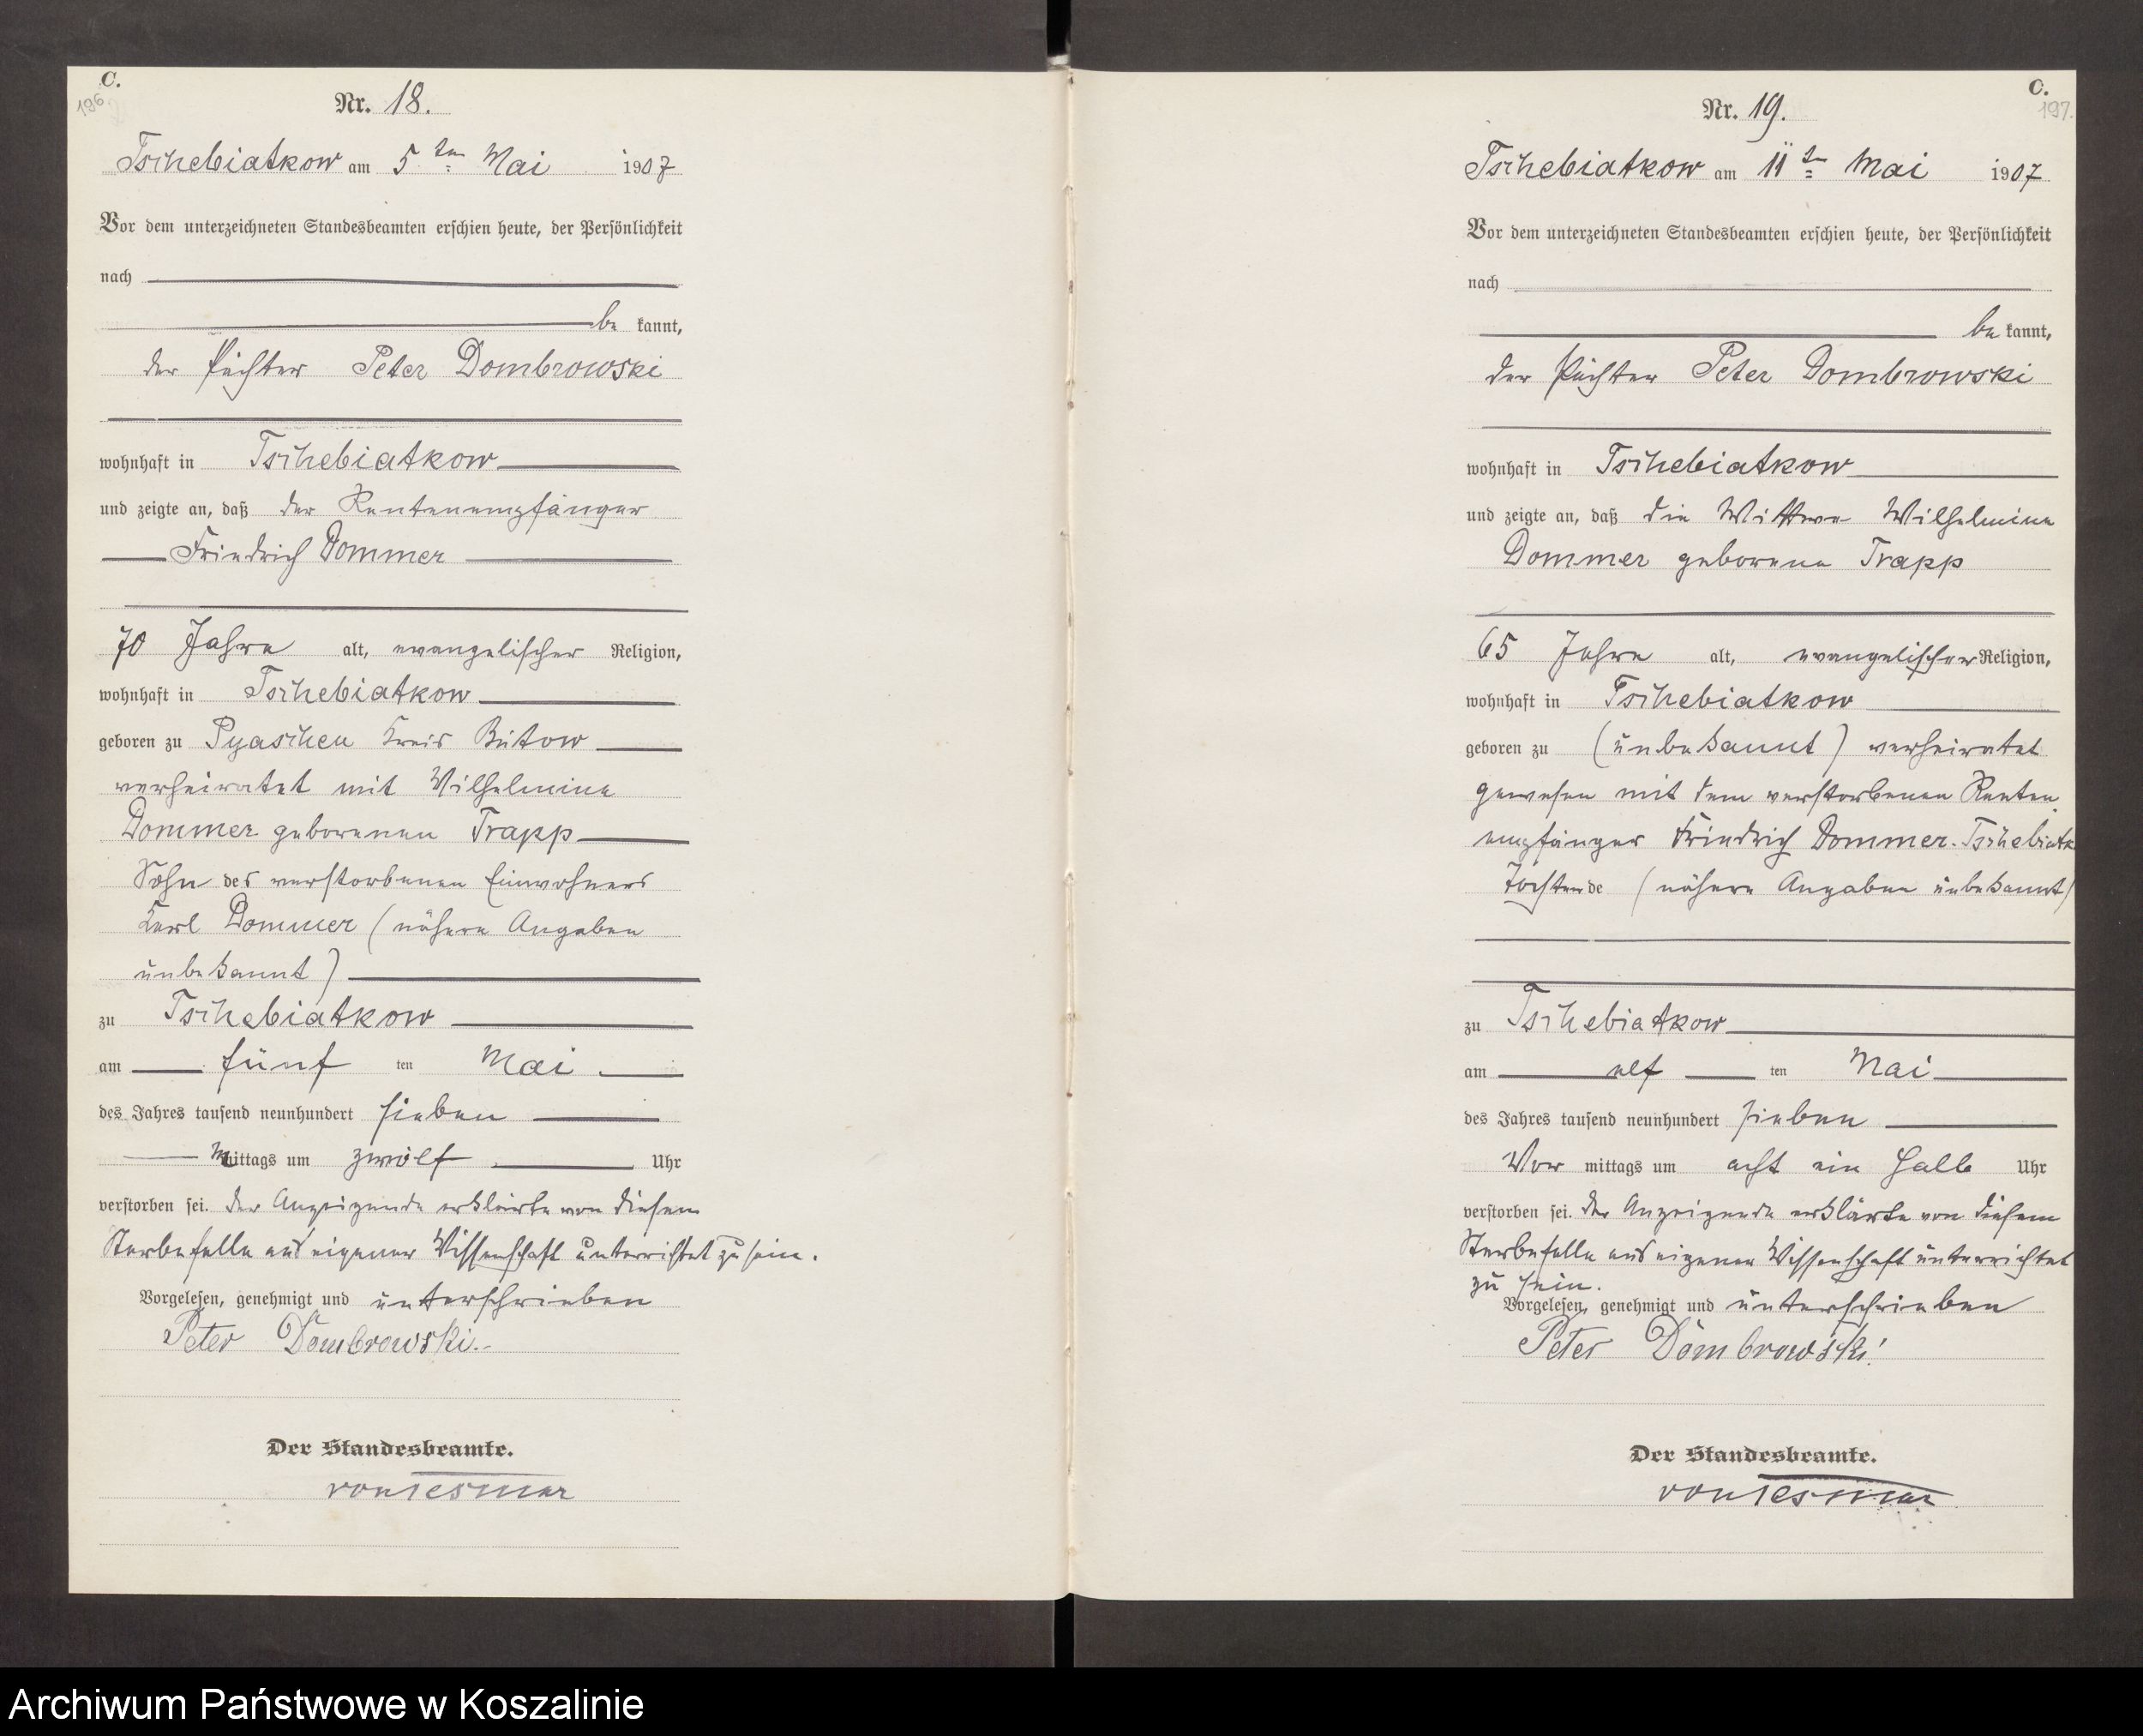 C.
196
Nr. 18.
Tschebiatkow am 5ten Mai 1907
Vor dem unterzeichneten Standesbeamten erschien heute, der Persönlichkeit
nach
be kannt,
der Pächter Peter Dombrowski
wohnhaft in Tschebiatkow
und zeigte an, daß der Rentenempfänger
Friedrich Dommer
70 Jahre alt, evangelischer Religion,
wohnhaft in Tschebiatkow
geboren zu Pyaschen Kreis Bütow
verheiratet mit Wilhelmine
Dommer geborenen Trapp
Sohn des verstorbenen Einwohners
Karl Dommer (nähere Angaben
unbekannt)
zu Tschebiatkow
am fünf ten Mai
des Jahres tausend neunhundert sieben
Mittags um zwölf Uhr
verstorben sei. Der Anzeigende erklärte von diesem
Sterbefalle aus eigener Wissenschaft unterrichtet zu sein.
Vorgelesen, genehmigt und unterschrieben
Peter Dombrowski.
Der Standesbeamte.
von Tesmar
C.
197.
Nr. 19.
Tschebiatkow am 11ten Mai 1907
Vor dem unterzeichneten Standesbeamten erschien heute, der Persönlichkeit
nach
be kannt,
der Pächter Peter Dombrowski
wohnhaft in Tschebiatkow
und zeigte an, daß die Wittwe Wilhelmine
Dommer geborene Trapp
65 Jahre alt, evangelischer Religion,
wohnhaft in Tschebiatkow
geboren zu (unbekannt) verheiratet
gewesen mit dem verstorbenen Renten
empfänger Friedrich Dommer-Tschebiatk
Tochter de (nähere Angaben unbekannt)
zu Tschebiatkow
am elf ten Mai
des Jahres tausend neunhundert sieben
Vor mittags um acht ein halb Uhr
verstorben sei. Der Anzeigende erklärte von diesem
Sterbefalle aus eigener Wissenschaft unterrichtet
zu sein.
Vorgelesen, genehmigt und unterschrieben
Peter Dombrowski
Der Standesbeamte.
von Tesmar
Archiwum Państwowe w Koszalinie